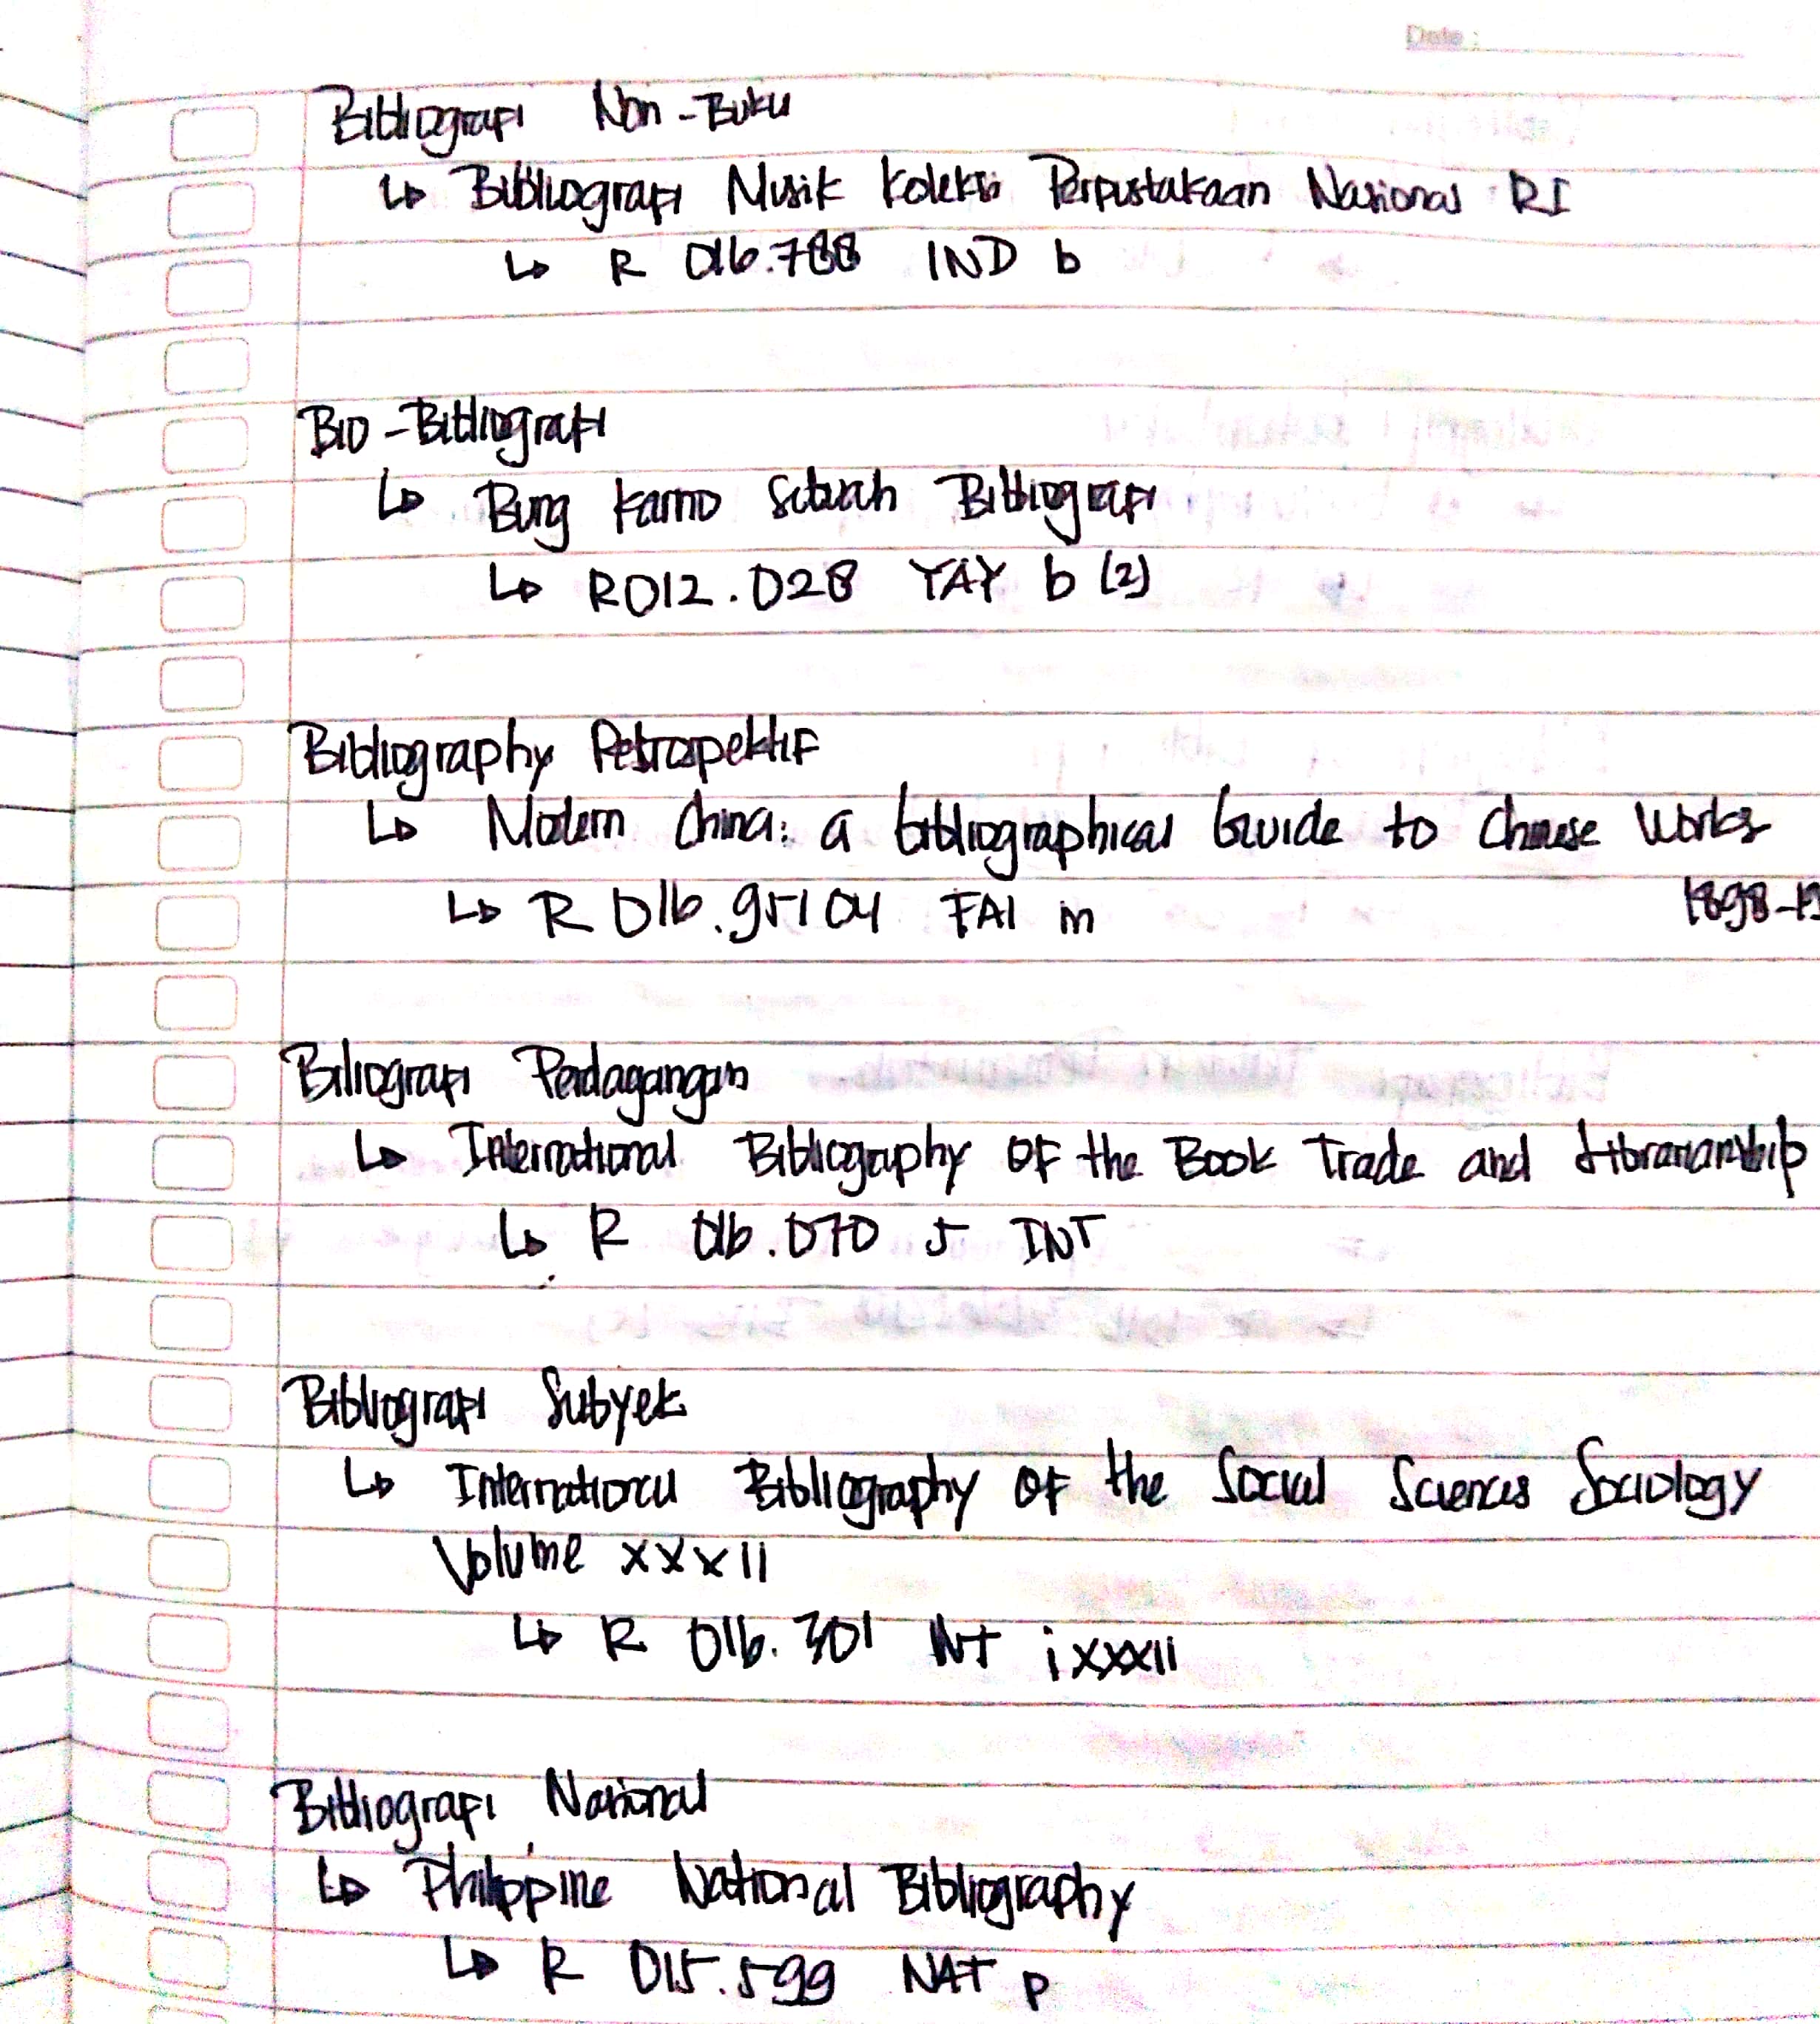 Date :
Bibliografi Non-Buku
↳ Bibliografi Musik Koleksi Perpustakaan Nasional RI
↳ R 016.788 IND b
Bio-Bibliografi
↳ Bung Karno Sebuah Bibliografi
↳ R012.028 YAY b (2)
Bibliography Retrospektif
↳ Modern China: a bibliographical Guide to Chinese Works
1898-19
↳ R 016.95104 FAI m
Biliografi Perdagangan
↳ International Bibliography OF the Book Trade and Librarianship
↳ R 016.070 5 INT
Bibliografi Subyek
↳ International Bibliography OF the Social Sciences Sociology
Volume XXXII
↳ R 016.301 INT i XXXII
Bibliografi Nasional
↳ Philippine National Bibliography
↳ R 015.599 NAT p